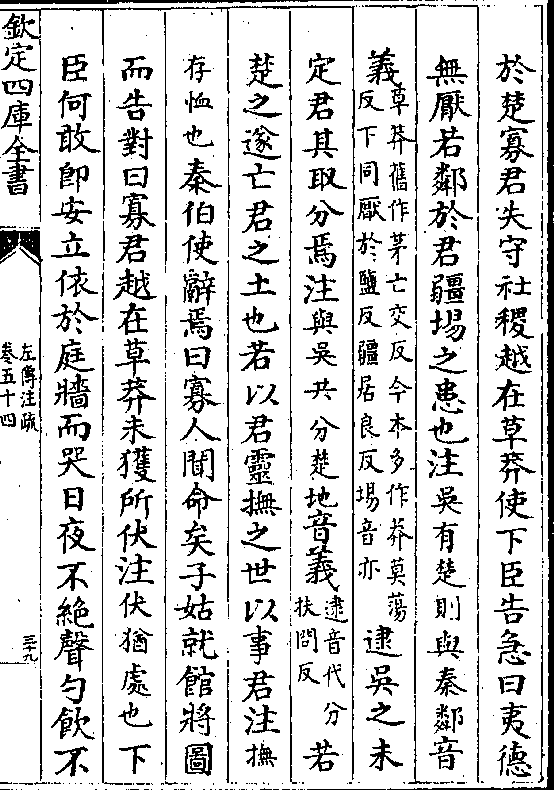 於楚寡君失守社稷越在草莽使下臣告急曰夷德
無厭若鄰於君疆埸之患也注吳有楚則與秦鄰音
義草莽舊作茅亡交反今本多作莽莫蕩反下同厭於鹽反疆居良反埸音亦逮吳之未
定君其取分焉注與吳共分楚地音義逮音代分扶問反若
楚之遂亡君之土也若以君靈撫之世以事君注撫
存恤也秦伯使辭焉曰寡人聞命矣子姑就館將圖
而告對曰寡君越在草莽未獲所伏注伏猶處也下
臣何敢即安立依於庭牆而哭日夜不絶聲勺飲不
欽定四庫全書
左傳注疏
卷五十四
三十九